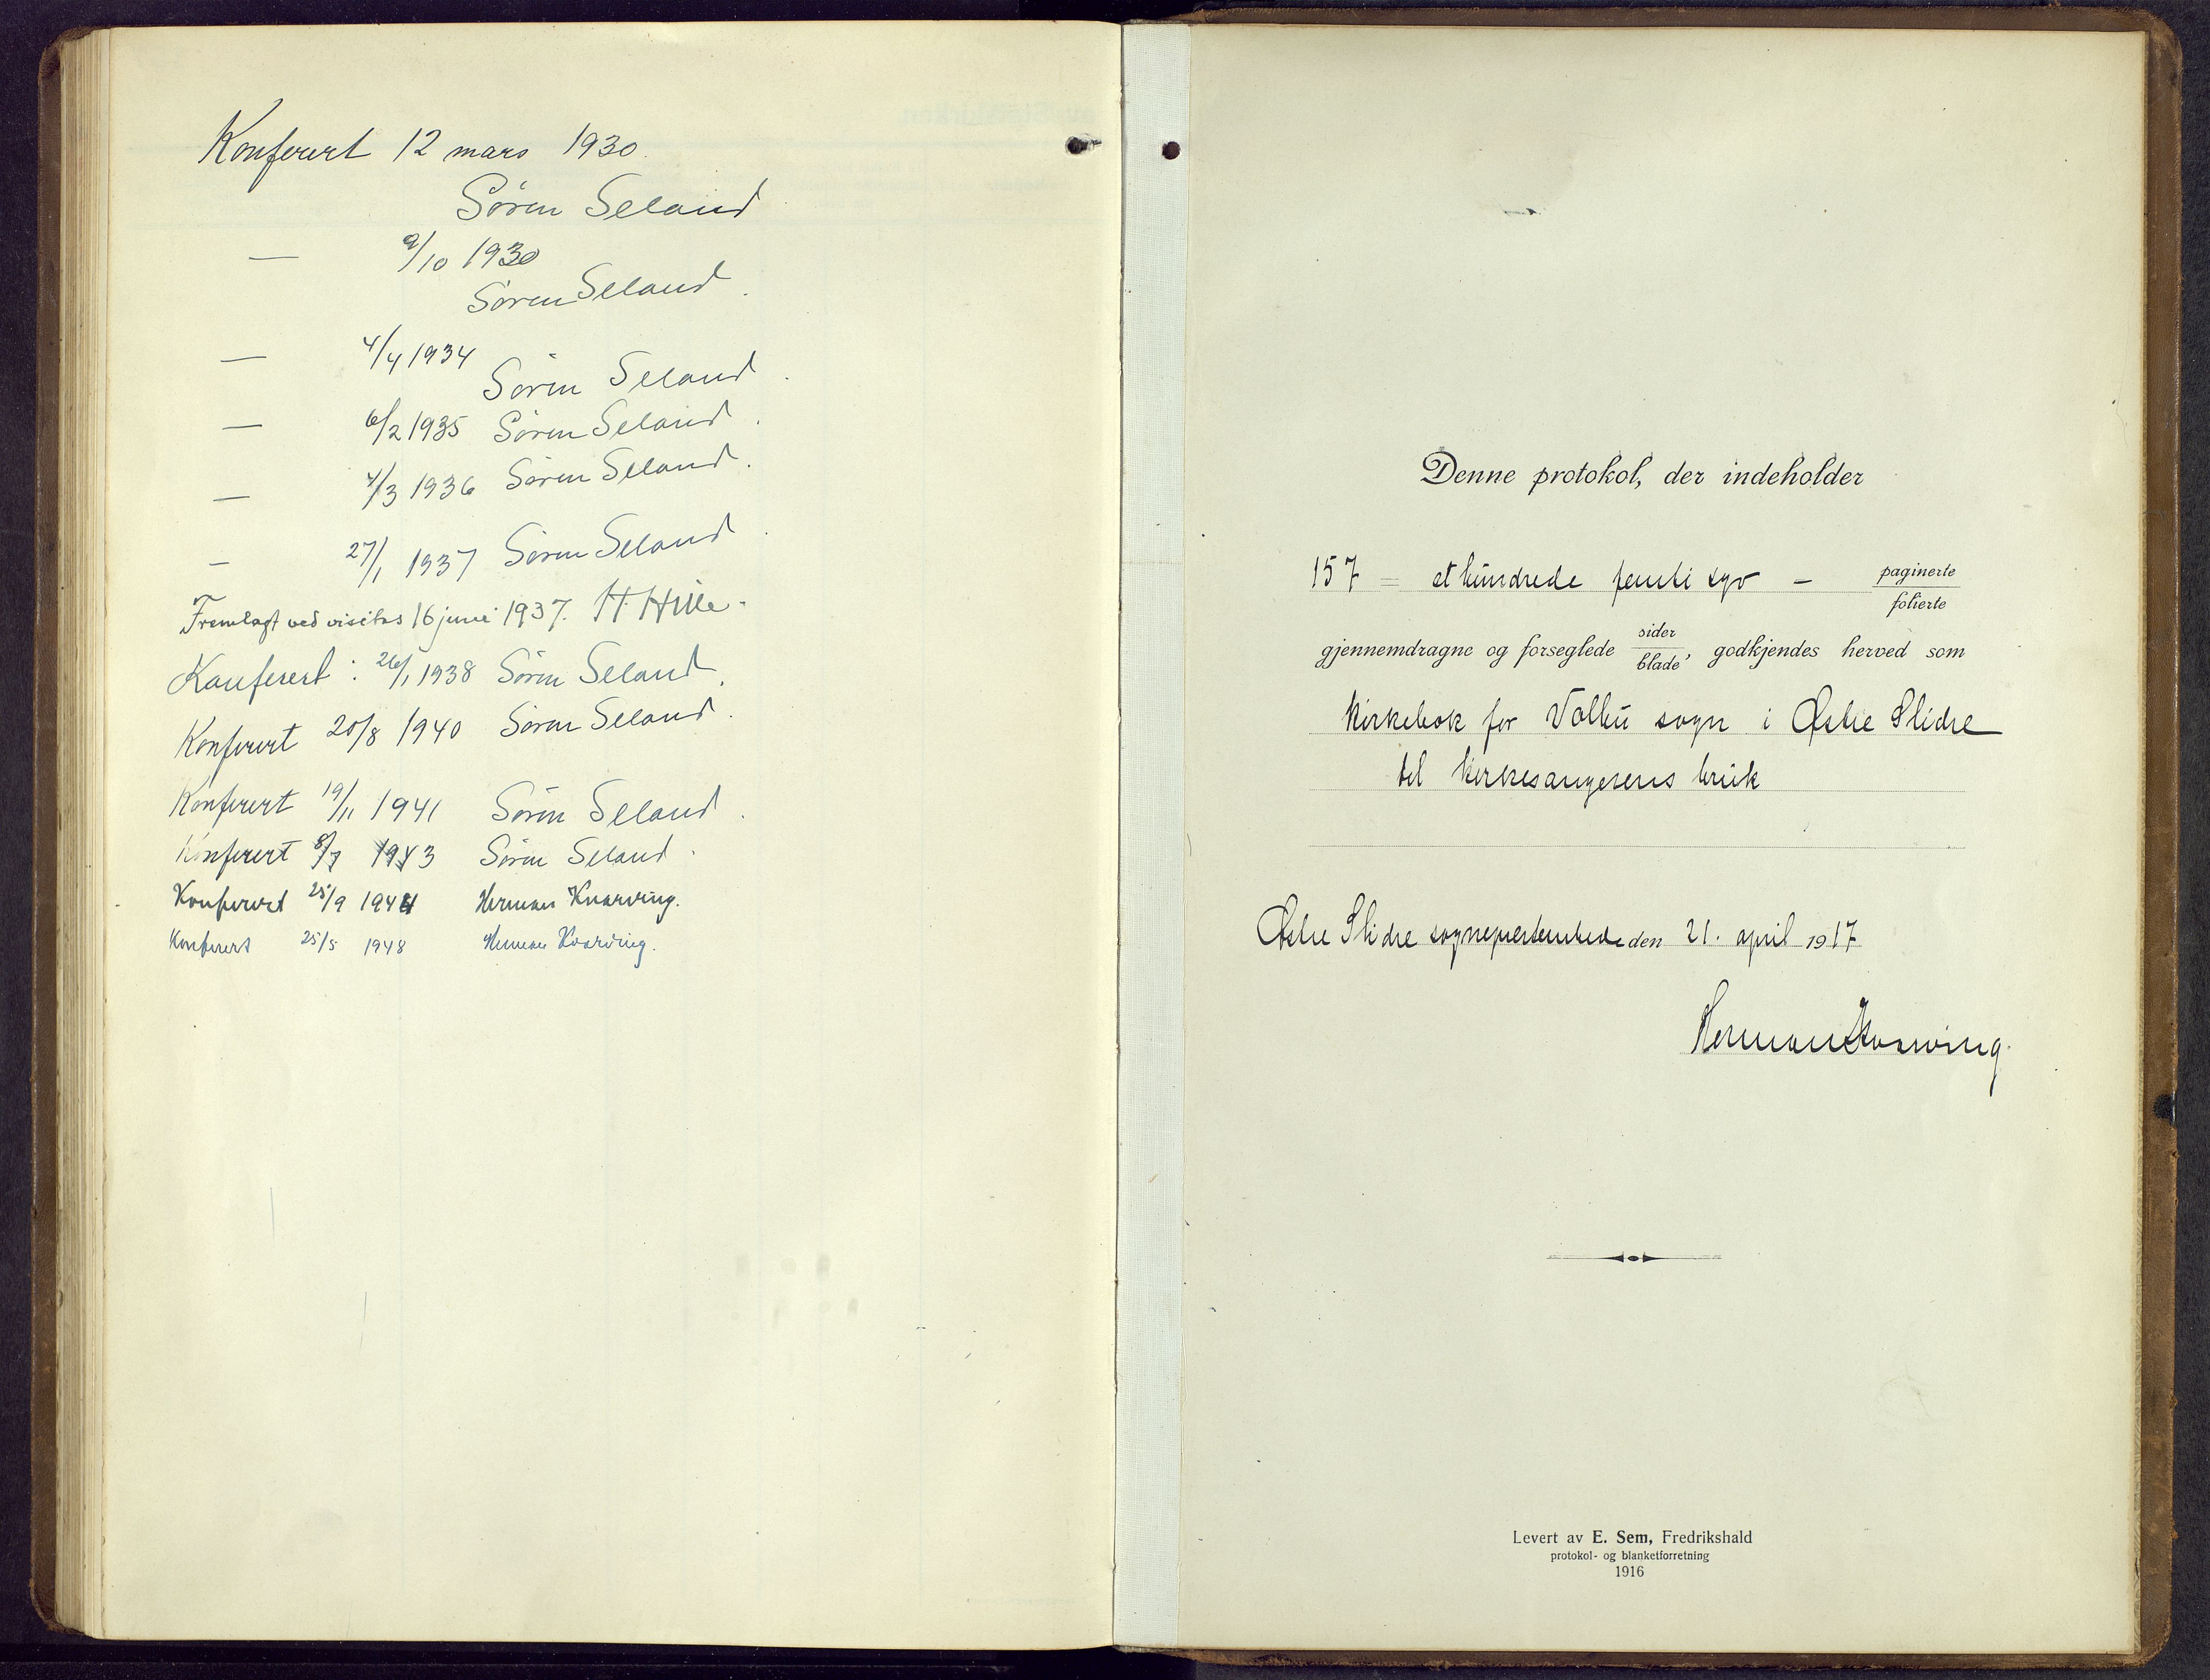 Konferert 12 mars 1930.
Søren Seland
— 9/10 1930
Søren Seland.
— 4/4 1934
Søren Seland.
— 6/2 1935 Søren Seland.
— 4/3 1936 Søren Seland.
— 27/1 1937 Søren Seland.
Fremlagt ved visitas 16 juni 1937. H Hille.
Konferert: 26/1 1938 Søren Seland.
Konferert 20/8 1940 Søren Seland.
Konferert 19/11 1941 Søren Seland.
Konferert 8/7 1943 Søren Seland.
Konferert 25/9 1944 Herman Kvarving.
Konferert 25/5 1948 Herman Kvarving.
Denne protokol, der indeholder
157 = ethundrede femti syv — paginerte
folierte
gjennemdragne og forseglede sider
blade, godkjendes herved som
Kirkebok for Volbu sogn i Østre Slidre
til kirkesangerens bruk
Østre Slidre sogneprestembede den 21. april 1917
Herman Kvarving.
Levert av E. Sem, Fredrikshald
protokol- og blanketforretning
1916